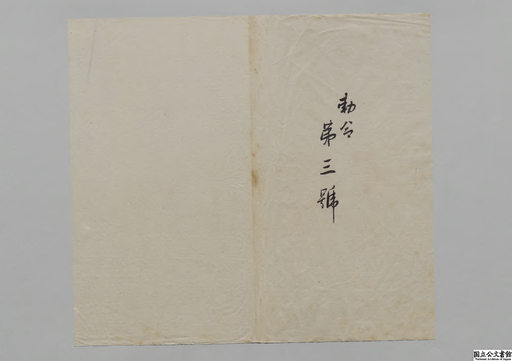 勅令
第三號
国立公文書館
National Archives of Japan